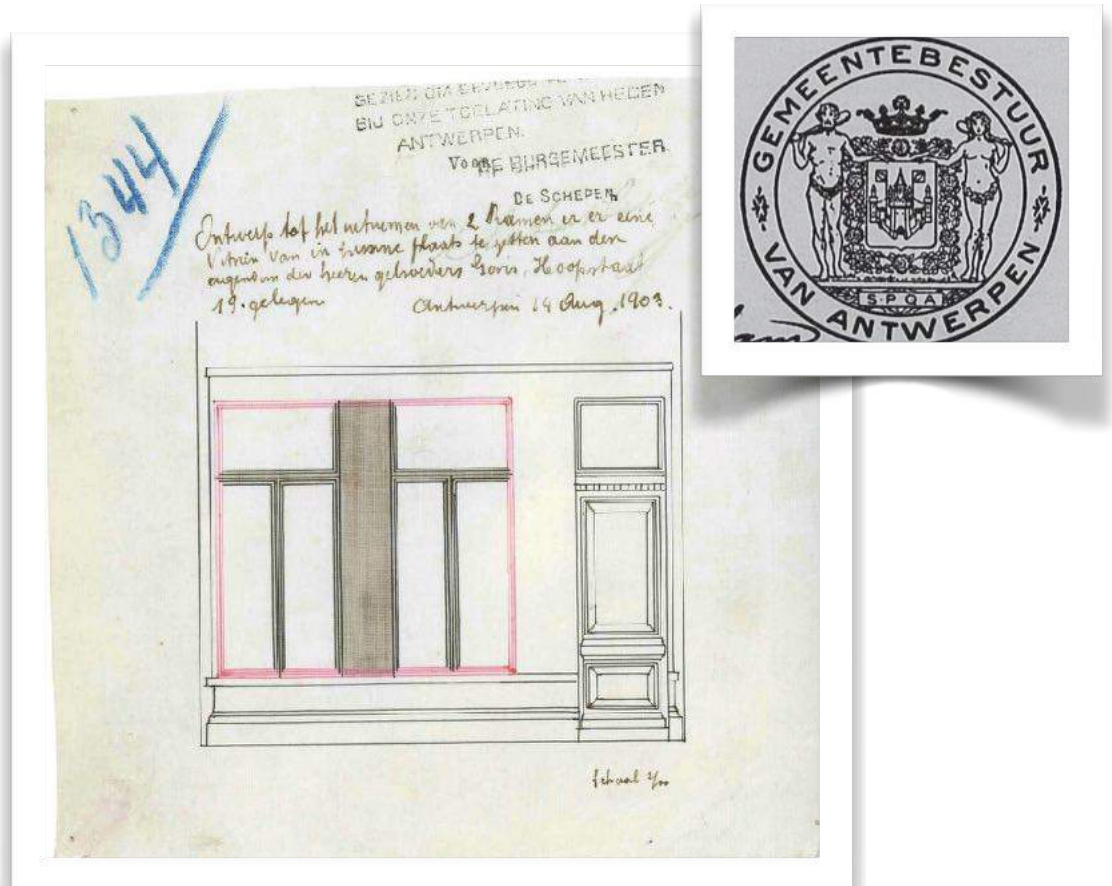 1344
GEZIEN OM GEVOEGD TE
BIJ ONZE TOELATING VAN HEDEN
ANTWERPEN.
Voor DE BURGEMEESTER
DE SCHEPEN
Ontwerp tot het uitnemen van 2 Ramen en er eene
Vitrin van in plaats te zetten aan den
eigendom der heeren gebroeders Goris, Hoopstraat
19. gelegen Antwerpen 14 Aug. 1903.
Schaal
GEMEENTEBESTUUR
VAN ANTWERPEN
S.P.Q.A